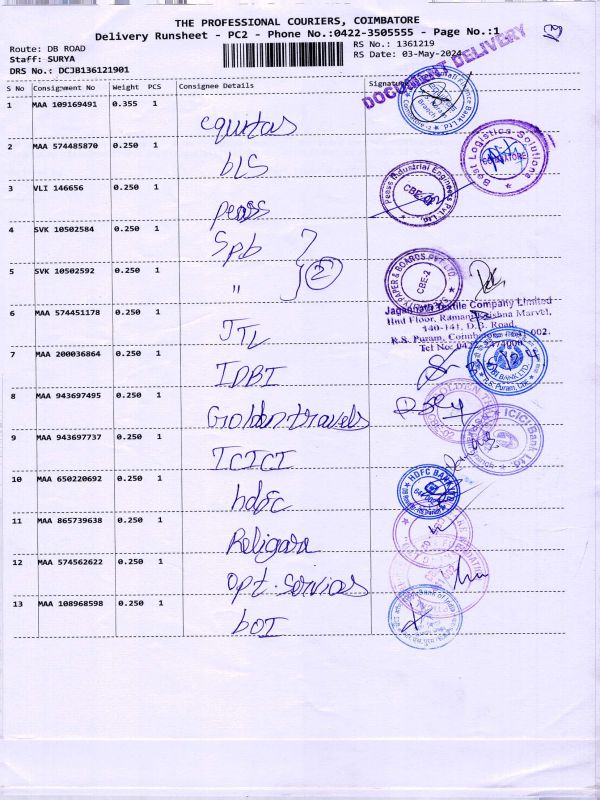 THE PROFESSIONAL COURIERS, COIMBATORE
Delivery Runsheet - PC2 - Phone No.:0422-3505555 - Page No.:1
Route: DB ROAD
Staff: SURYA
DRS No.: DCJB136121901
RS No.: 1361219
RS Date: 03-May-2024
DOCUMENT DELIVERY
S No Consignment No Weight PCS Consignee Details Signature
1 MAA 109169491 0.355 1 equitas
2 MAA 574485870 0.250 1 bLS
Best Logistics Solutions
3 VLI 146656 0.250 1 peass
Peass Industrial Engineers Pvt. Ltd.
CBE-
4 SVK 10502584 0.250 1 Spb
5 SVK 10502592 0.250 1 "
2
PAPER & BOARDS PVT LTD
CBE-2
6 MAA 574451178 0.250 1 JTL
Jagannath Textile Company Limited
IInd Floor, Ramakrishna Marvel,
140-141, D.B. Road,
R.S. Puram, Coimbatore 002.
Tel No: 0422-2474000
7 MAA 200036864 0.250 1 IDBI
IDBI BANK LTD.
R.S. Puram, CBE
8 MAA 943697495 0.250 1 Golden travels
GOLDEN
9 MAA 943697737 0.250 1 ICICI
ICICI Bank Ltd.
10 MAA 650220692 0.250 1 hdfc
HDFC BANK LTD
11 MAA 865739638 0.250 1 Religare
12 MAA 574562622 0.250 1 opt. services
13 MAA 108968598 0.250 1 bOI
Bank of India